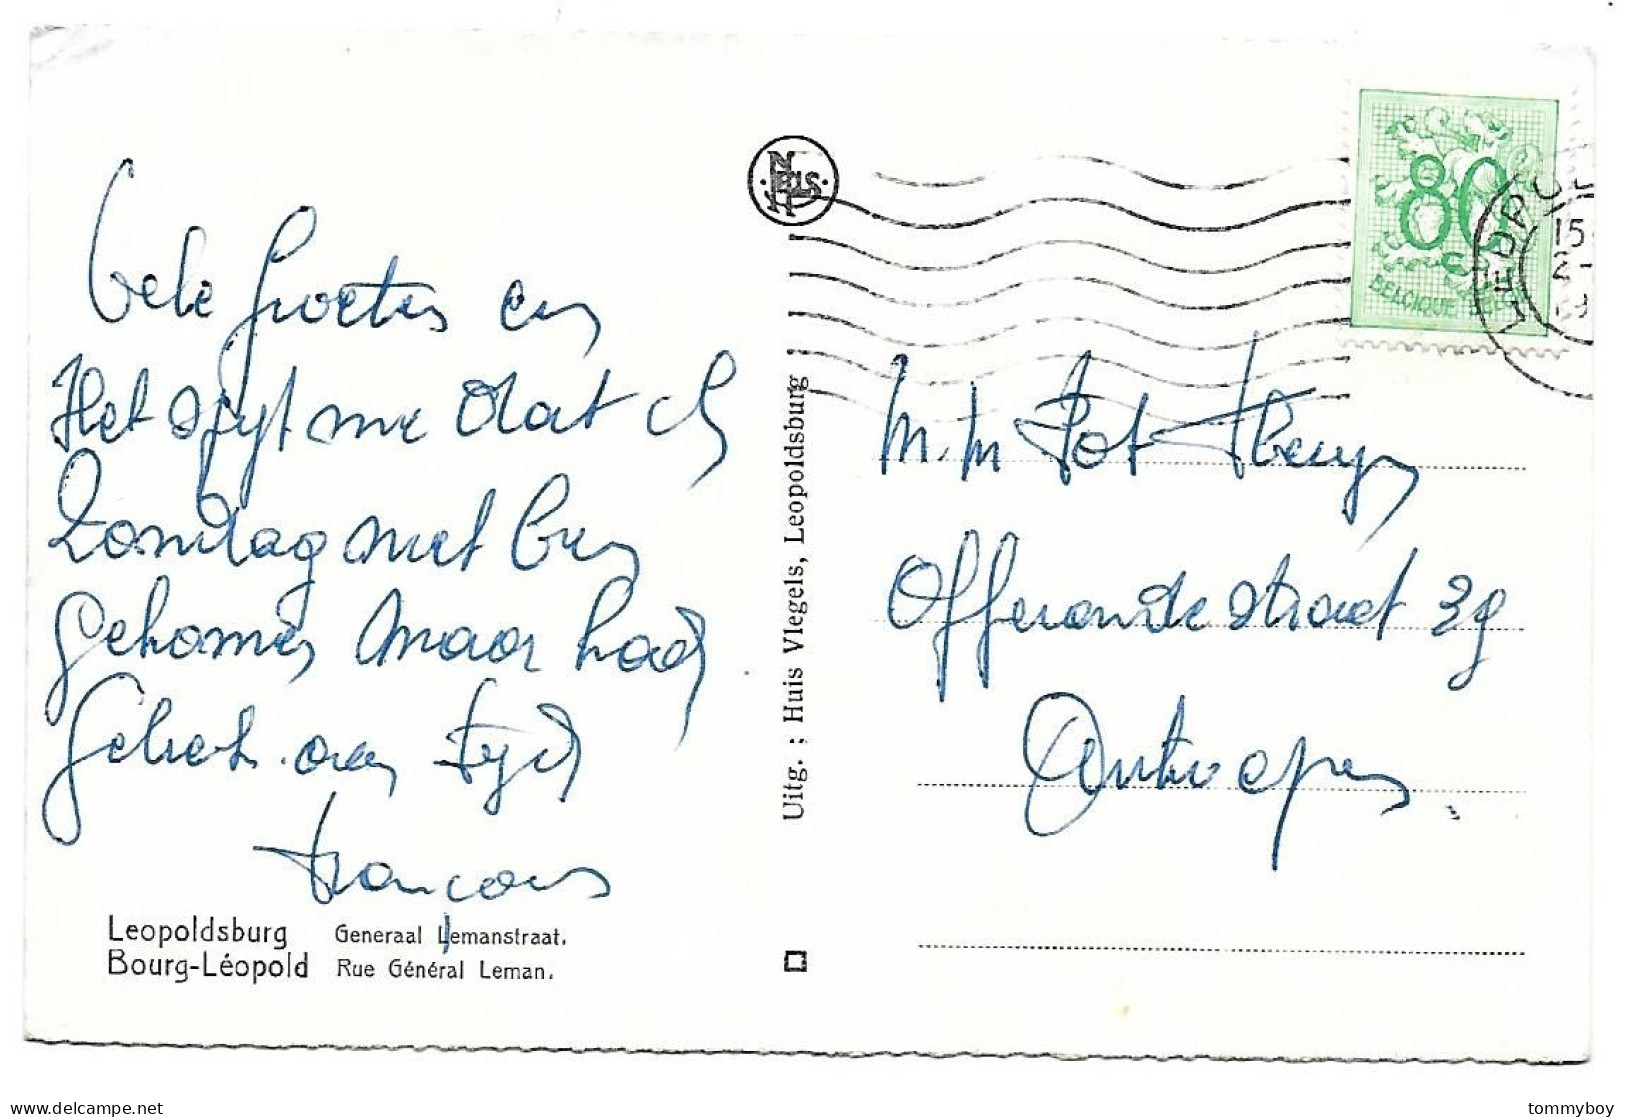 Vele Groetes en
Het spyt me dat ik
Zondag met ben
gekomen maar had
Gebrek aan tyd
francois
Leopoldsburg Generaal Lemanstraat.
Bourg-Léopold Rue Général Leman.
Uitg. : Huis Vlegels, Leopoldsburg
NELS
80
BELGIQUE BELG
LEOPOL
15
2-
69
M.M Pot
Offerande straat 39
Antwerpen.
delcampe.net
tommyboy